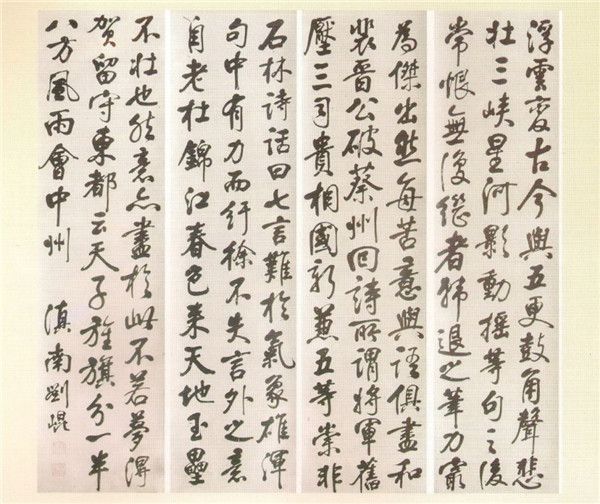 浮雲變古今與五更鼓角聲悲
壯三峽星河影動搖等句之後
常恨無復繼者韓退之筆力最
為傑出然每苦意與語俱盡和
裴晉公破蔡州回詩所謂將軍舊
壓三司貴相國新兼五等崇非
石林詩話曰七言難於氣象雄渾
句中有力而紆徐不失言外之意
自老杜錦江春色來天地玉壘
不壯也然意亦盡於此不若夢得
賀留守東都云天子旌旗分一半
八方風雨會中州
滇南劉崐